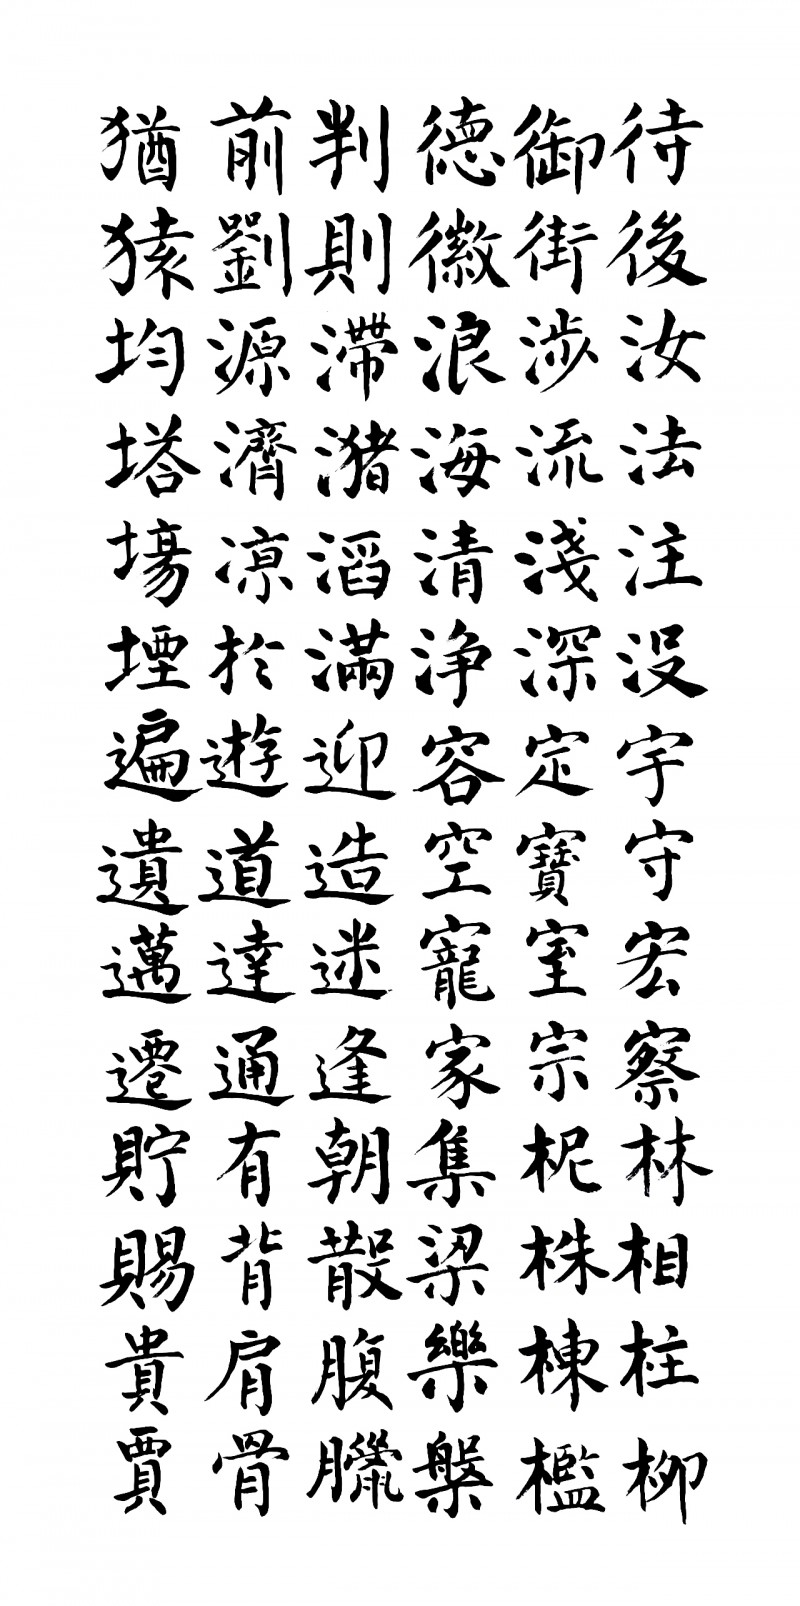 待後汝法注没宇守宏察林相柱柳
御街涉流淺深定寶室宗柅株棟檻
德徽浪海清浄容空寵家集梁樂槃
判則滯潴滔滿迎造迷逢朝散腹臘
前劉源濟凉於遊道達通有背肩骨
猶猿均塔塲堙遍遺邁遷貯賜貴賈